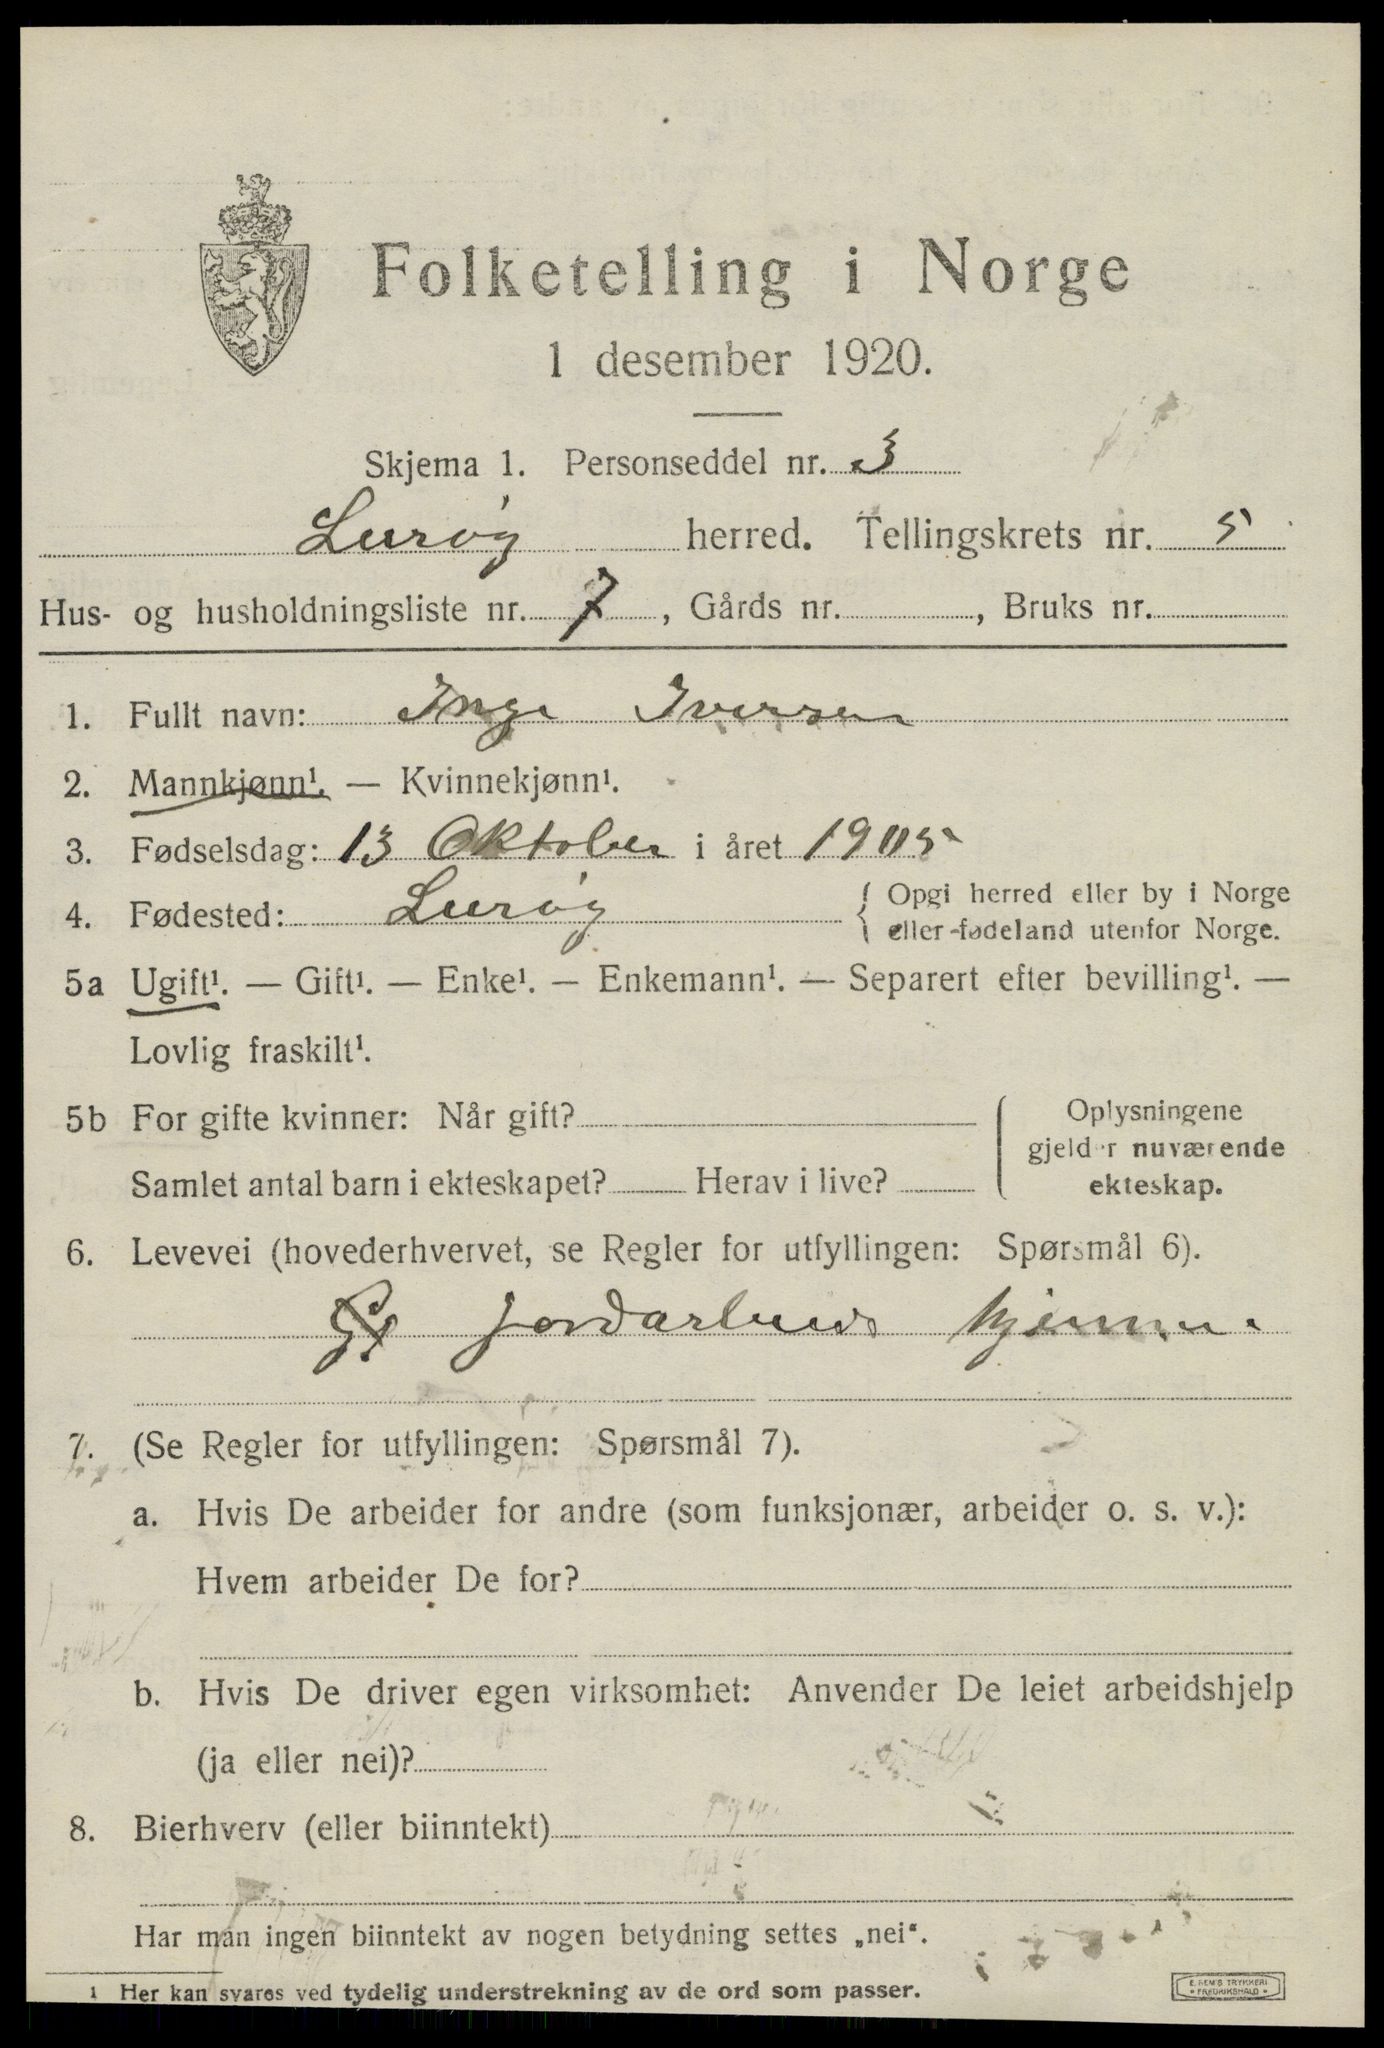 Folketelling i Norge
1 desember 1920.
Skjema 1. Personseddel nr. 3
Lurøy herred. Tellingskrets nr. 5
Hus- og husholdningsliste nr. 7, Gårds nr. , Bruks nr.
1. Fullt navn: Inge Iversen
2. Mannkjønn¹. — Kvinnekjønn¹.
3. Fødselsdag: 13 Oktober i året 1905
4. Fødested: Lurøy { Opgi herred eller by i Norge
eller fødeland utenfor Norge.
5a Ugift¹. — Gift¹. — Enke¹. — Enkemann¹. — Separert efter bevilling¹. —
Lovlig fraskilt¹.
5b For gifte kvinner: Når gift?
Samlet antal barn i ekteskapet? Herav i live?
Oplysningene
gjelder nuværende
ekteskap.
6. Levevei (hovederhvervet, se Regler for utfyllingen: Spørsmål 6).
Jordarbeide hjemme
7. (Se Regler for utfyllingen: Spørsmål 7).
a. Hvis De arbeider for andre (som funksjonær, arbeider o. s. v.):
Hvem arbeider De for?
b. Hvis De driver egen virksomhet: Anvender De leiet arbeidshjelp
(ja eller nei)?
8. Bierhverv (eller biinntekt)
Har man ingen biinntekt av nogen betydning settes „nei“.
1 Her kan svares ved tydelig understrekning av de ord som passer.
E. SEM'S TRYKKERI
FREDRIKSHALD